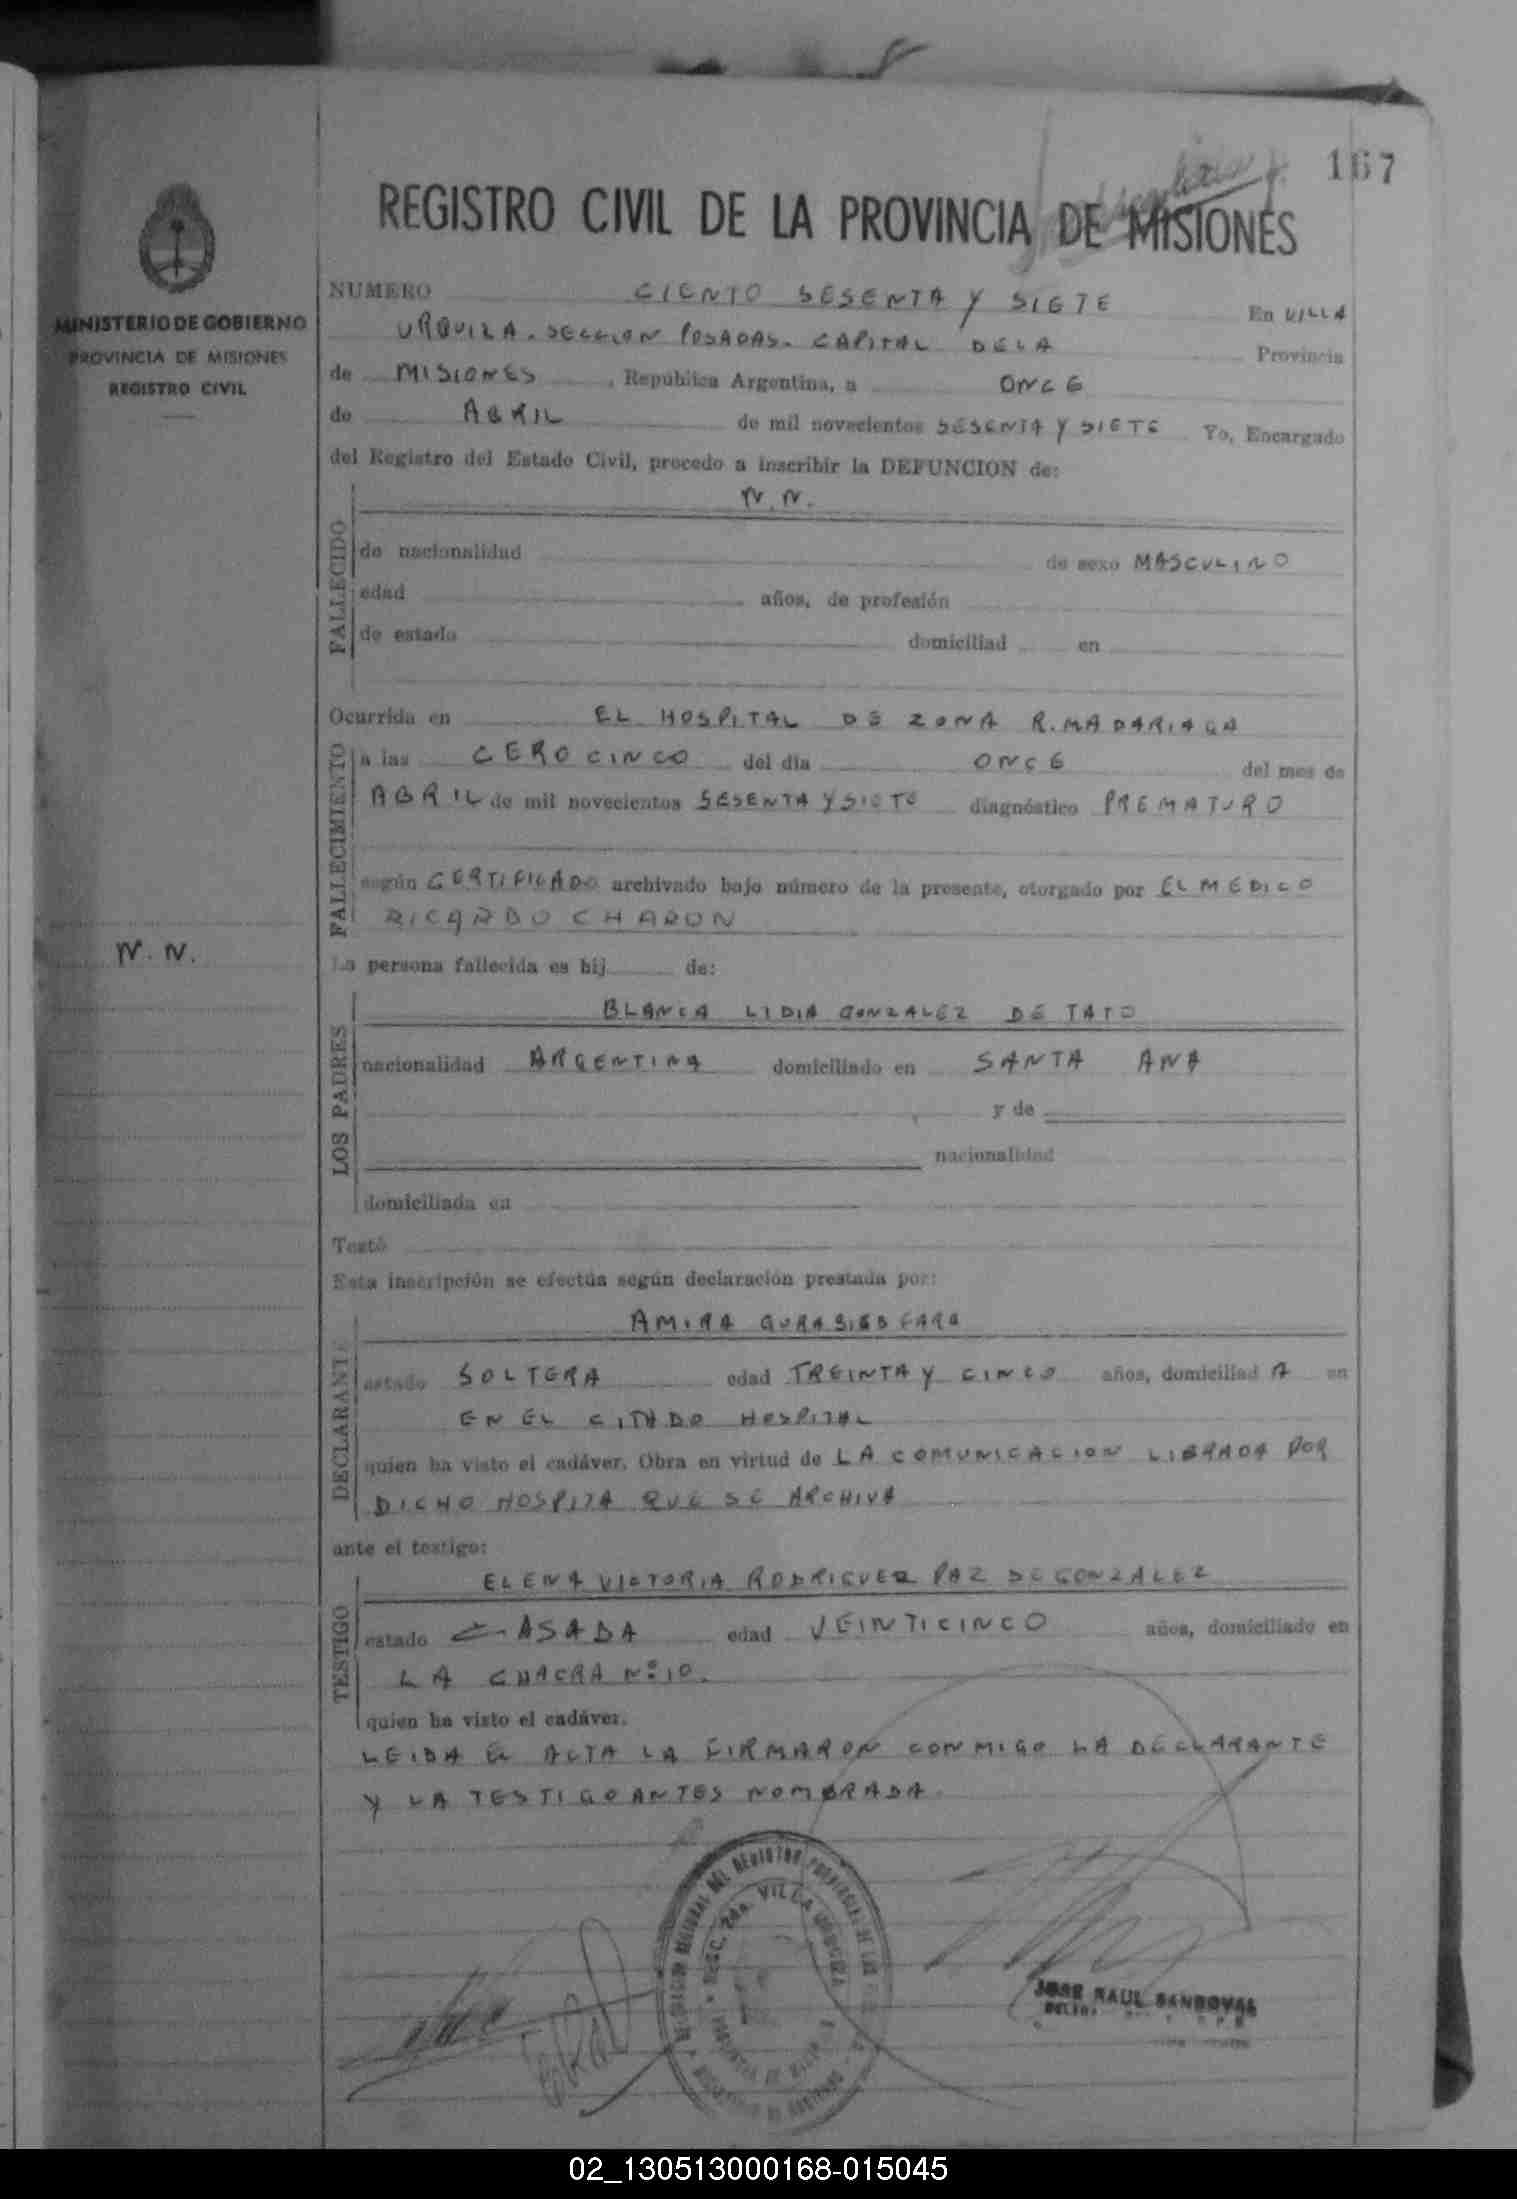 167
REGISTRO CIVIL DE LA PROVINCIA DE MISIONES
MINISTERIO DE GOBIERNO
PROVINCIA DE MISIONES
REGISTRO CIVIL
NUMERO CIENTO SESENTA Y SIETE En VILLA
URQUIZA. SECCION POSADAS. CAPITAL DE LA Provincia
de MISIONES, República Argentina, a ONCE
de ABRIL de mil novecientos SESENTA Y SIETE Yo, Encargado
del Registro del Estado Civil, procedo a inscribir la DEFUNCION de:
FALLECIDO
N. N.
de nacionalidad de sexo MASCULINO
edad años, de profesión
de estado domiciliad en
Ocurrida en EL HOSPITAL DE ZONA R. MADARIAGA
FALLECIMIENTO
a las CERO CINCO del día ONCE del mes de
ABRIL de mil novecientos SESENTA Y SIETE diagnóstico PREMATURO
según CERTIFICADO archivado bajo número de la presente, otorgado por EL MEDICO
RICARDO CHARON
N. N.
La persona fallecida es hij de:
LOS PADRES
BLANCA LIDIA GONZALEZ DE TATO
nacionalidad ARGENTINA domiciliado en SANTA ANA
y de
nacionalidad
domiciliada en
Testó
Esta inscripción se efectúa según declaración prestada por:
DECLARANTE
AMIRA
estado SOLTERA edad TREINTA Y CINCO años, domiciliad A en
EN EL CITADO HOSPITAL
quien ha visto el cadáver. Obra en virtud de LA COMUNICACION LIBRADA POR
DICHO HOSPITA QUE SE ARCHIVA
ante el testigo:
TESTIGO
ELENA VICTORIA RODRIGUEZ PAZ DE GONZALEZ
estado CASADA edad VEINTICINCO años, domiciliado en
LA CHACRA Nº 10.
quien ha visto el cadáver.
LEIDA EL ACTA LA FIRMARON CONMIGO LA DECLARANTE
Y LA TESTIGO ANTES NOMBRADA.
SECC. 2da. VILLA URQUIZA
JOSE RAUL SANDOVAL
02_130513000168-015045